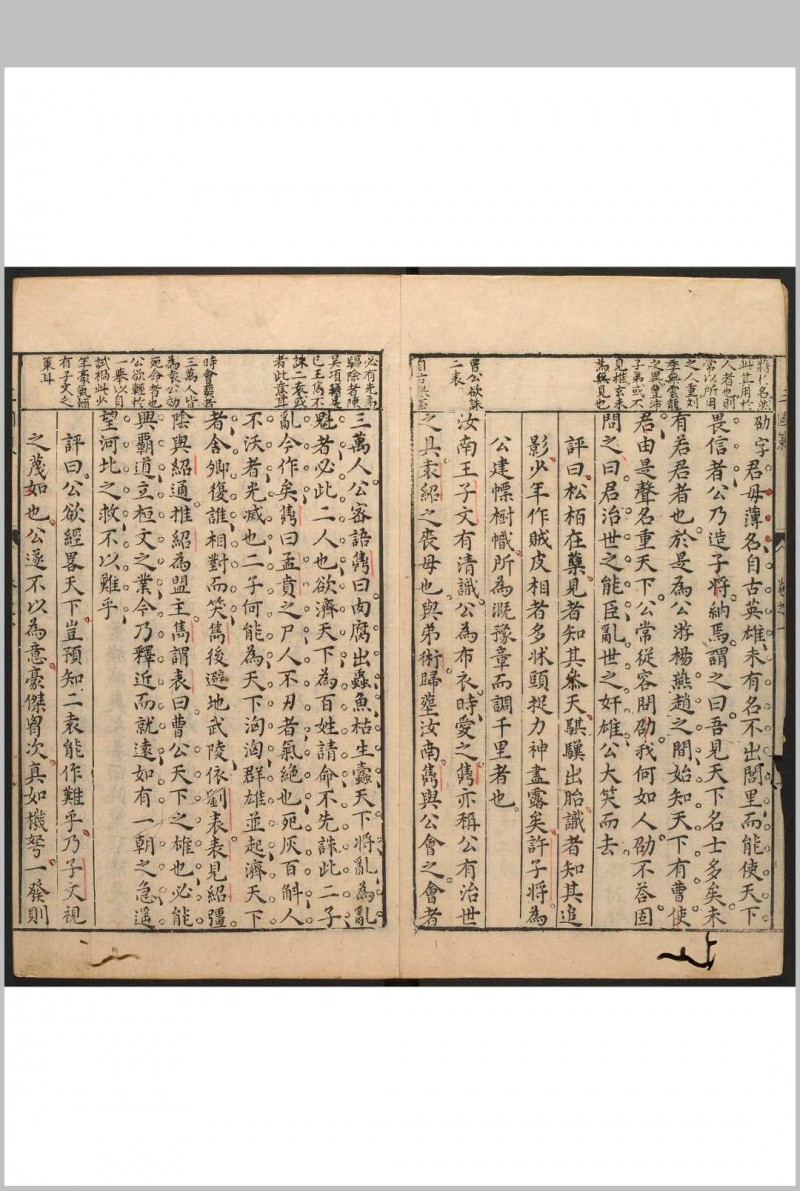 劭字君毋薄名自古英雄未有名不出閭里而能使天下
畏信者公乃造子將納焉謂之曰吾見天下名士多矣未
有若君者也於是為公游楊燕趙之間始知天下有曹使
君由是聲名重天下公常從容問劭我何如人劭不荅固
問之曰君治世之能臣亂世之奸雄公大笑而去
評曰松栢在蘖見者知其叅天騏驥出胎識者知其追
影少年作賊皮相者多牀頭捉力神盡露矣許子將為
公建幖樹幟所為溉豫章而調千里者也
曹公欲誅
二袁
汝南王子文有清識公為布衣時愛之雋亦稱公有治世
之具袁紹之喪母也與弟術歸塟汝南雋與公會之會者
必有先為
驅除者陳
吳項籍是
已王儁不
誅二袁或
者此意耳
三萬人公密語雋曰肉腐出蟲魚枯生蠹天下將亂為亂
魁者必此二人也欲濟天下為百姓請命不先誅此二子
亂今作矣雋曰孟賁之尸人不刃者氣絶也死灰百斛人
不沃者光滅也二子何能為天下洶洶群雄並起濟天下
時會葬者
三萬人皆
為袁公効
死命者也
公欲輕於
一舉以自
試禍此少
年豪氣頼
有子文之
藥耳
者舍卿復誰相對而笑雋後避地武陵依劉表表見紹彊
陰與紹通推紹為盟主雋謂表曰曹公天下之雄也必能
興覇道立桓文之業今乃釋近而就遠如有一朝之急遥
望河北之救不以難乎
評曰公欲經畧天下豈預知二袁能作難乎乃子文視
之蔑如也公遂不以為意豪傑胷次真如機弩一發則